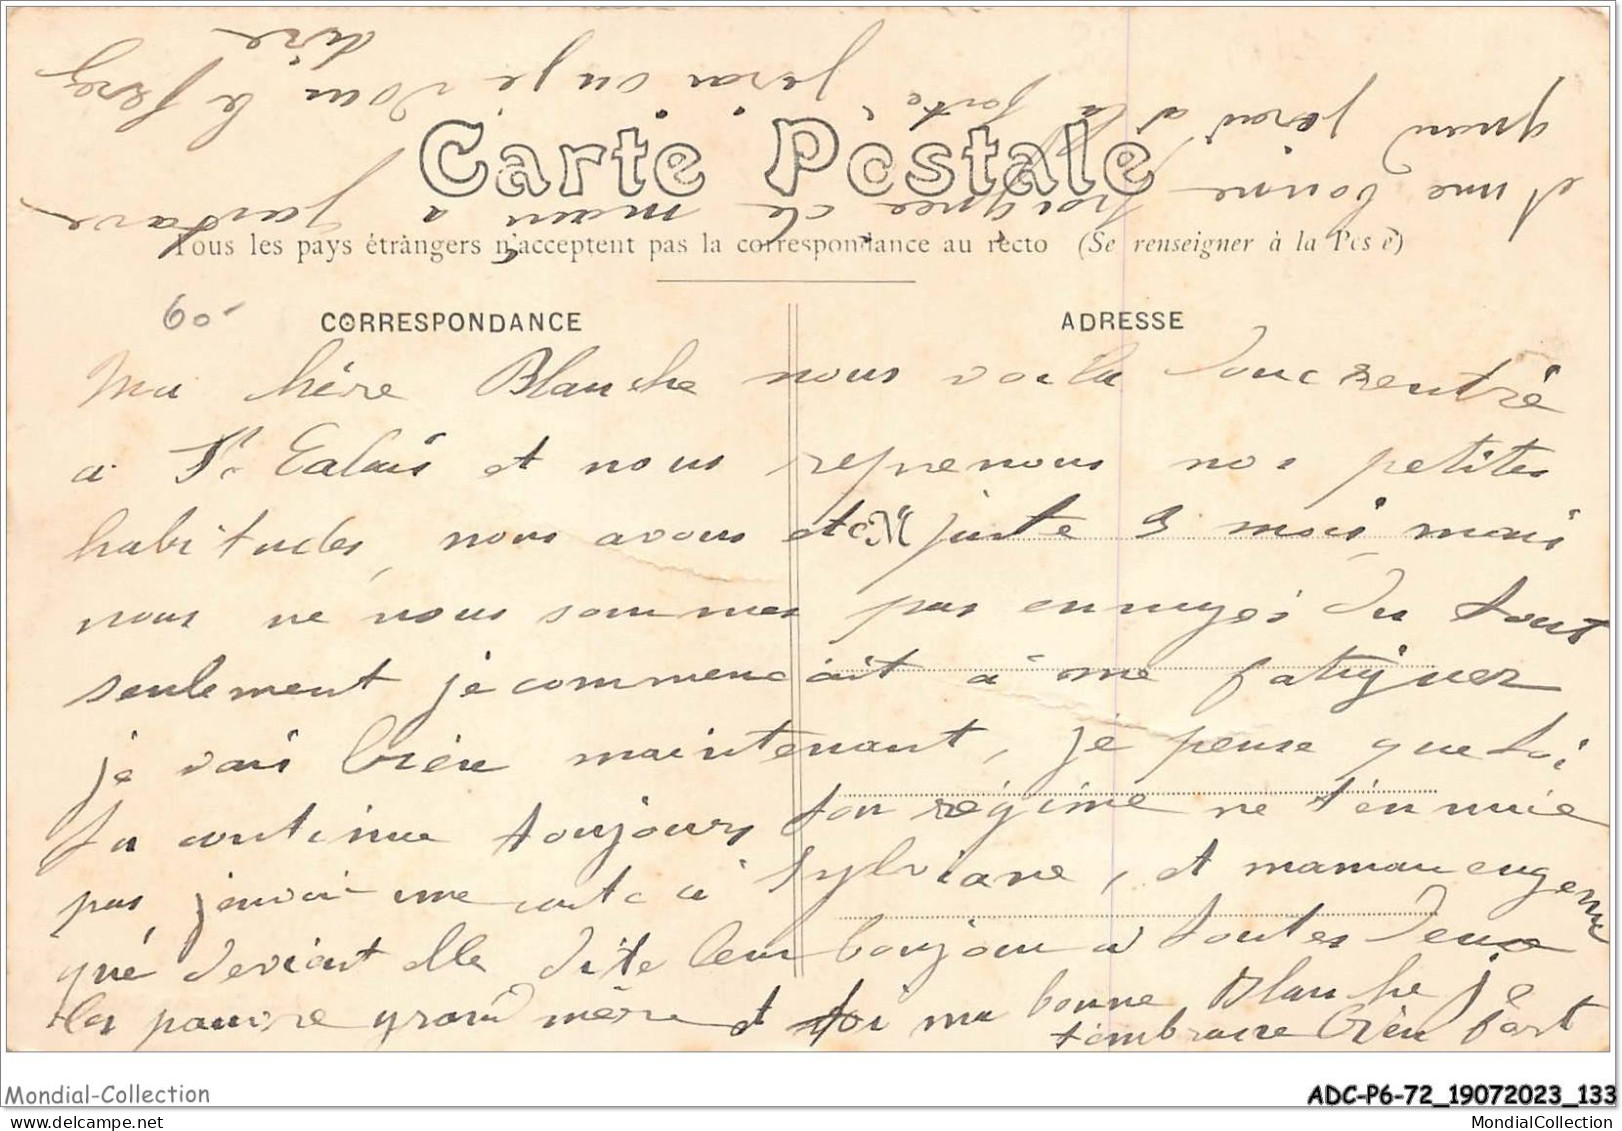 Carte Postale
Tous les pays étrangers n'acceptent pas la correspondance au recto (Se renseigner à la Poste)
60-
CORRESPONDANCE
ADRESSE
Ma chère Blanche nous voila donc rentré
a St Calais et nous reprenons nos petites
habitudes, nous avons eté juste 3 mois, mais
nous ne nous sommes pas ennuyés du tout
seulement je commencait à me fatiguer
je vais bien maintenant, je pense que toi
tu continue toujours ton régime ne t'ennuie
pas, j'envoi une carte a Sylviane, et maman eugenie
qué devient elle dite leur bonjour a toutes deux
la pauvre grand mère et toi ma bonne Blanche je
t'embrasse bien fort
et une bonne poignée de main a Gustave
quand j'irai a la forte, j'irai ou je vous le ferez
dire
Mondial-Collection
ADC-P6-72_19072023_133
MondialCollection